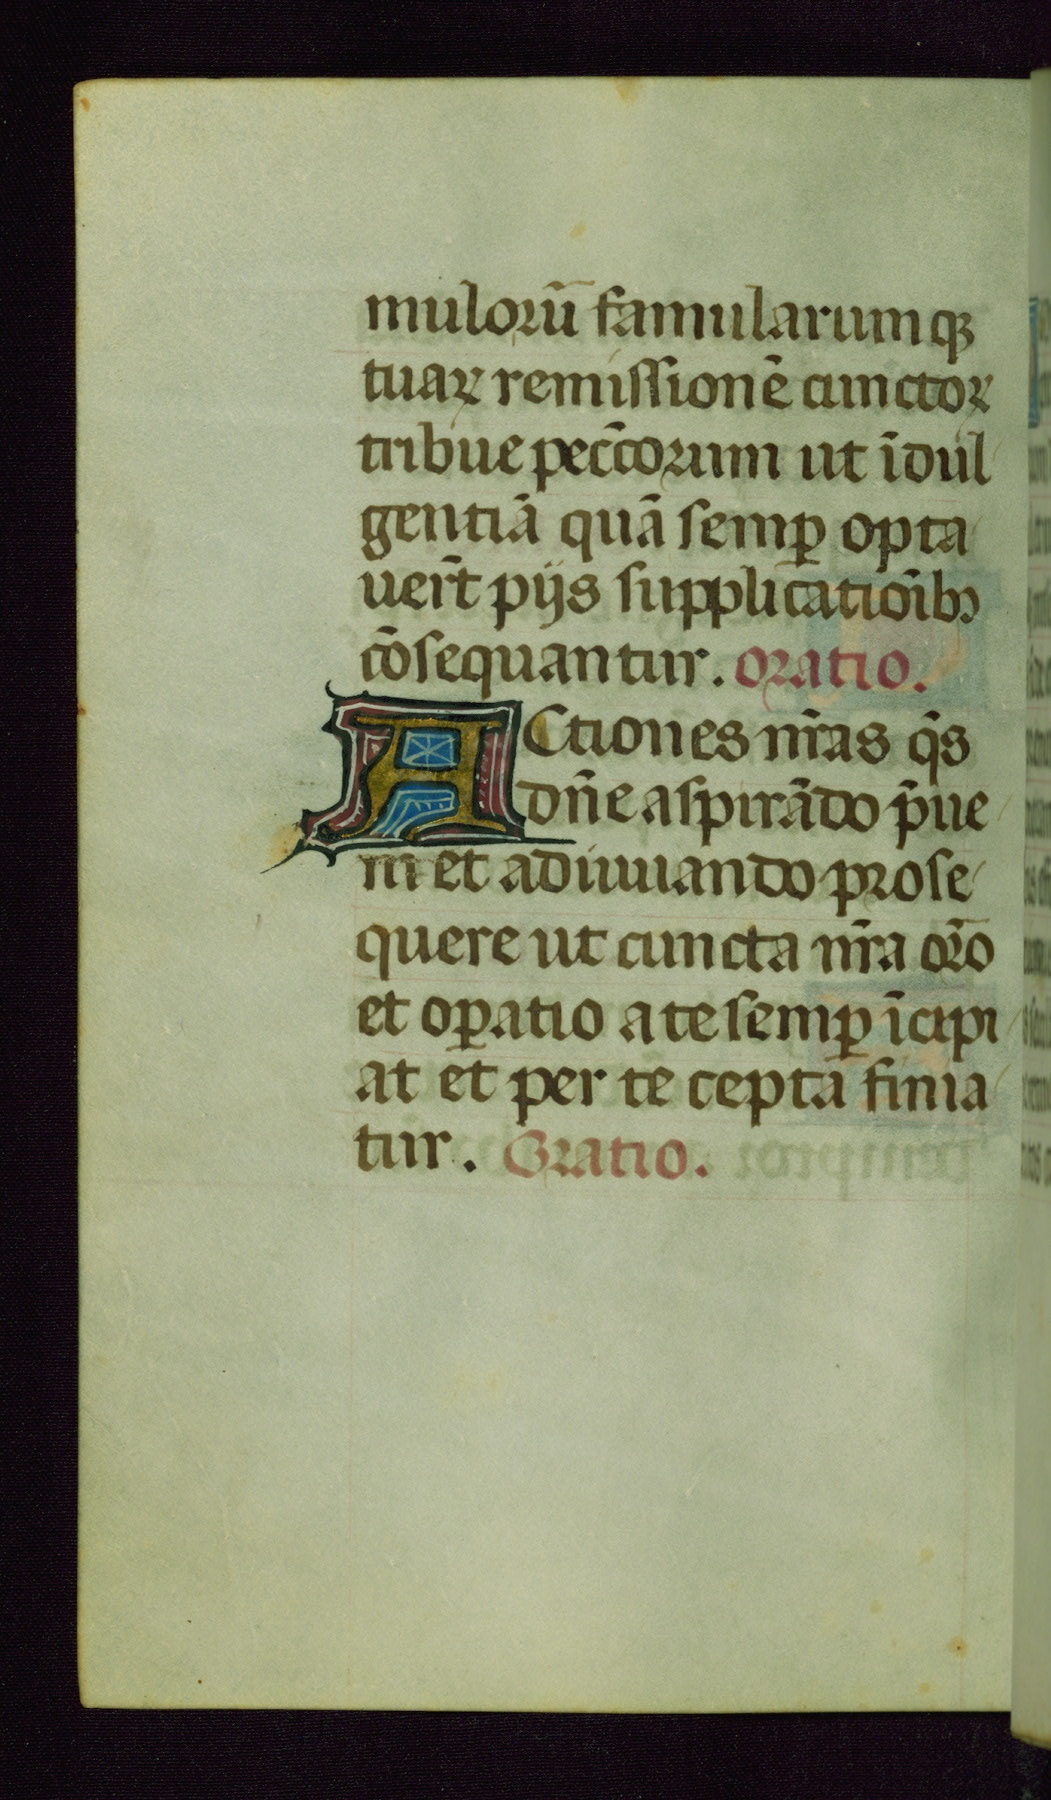 mulorū famularumqꝫ
tuaꝝ remissionē cunctoꝝ
tribue pecc̄corum ut īdul
gentiā quā semꝑ opta
uer̄t pijs supplicatiōibꝫ
cōsequantur. Oratio.
ACtiones nr̄as q̄s
dn̄e aspirādo p̄ue
ni et adiuuando prose
quere ut cuncta nr̄a orō
et oꝑatio a te semꝑ īcipi
at et per te cepta finia
tur. Oratio.